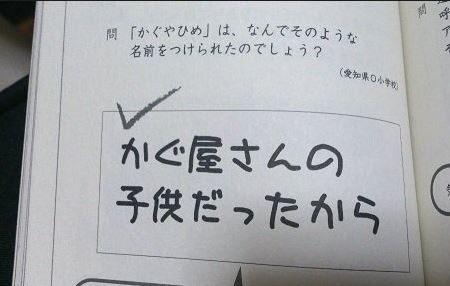 問 「かぐやひめ」は、なんでそのような
名前をつけられたのでしょう？
(愛知県O小学校)
かぐ屋さんの
子供だったから
問